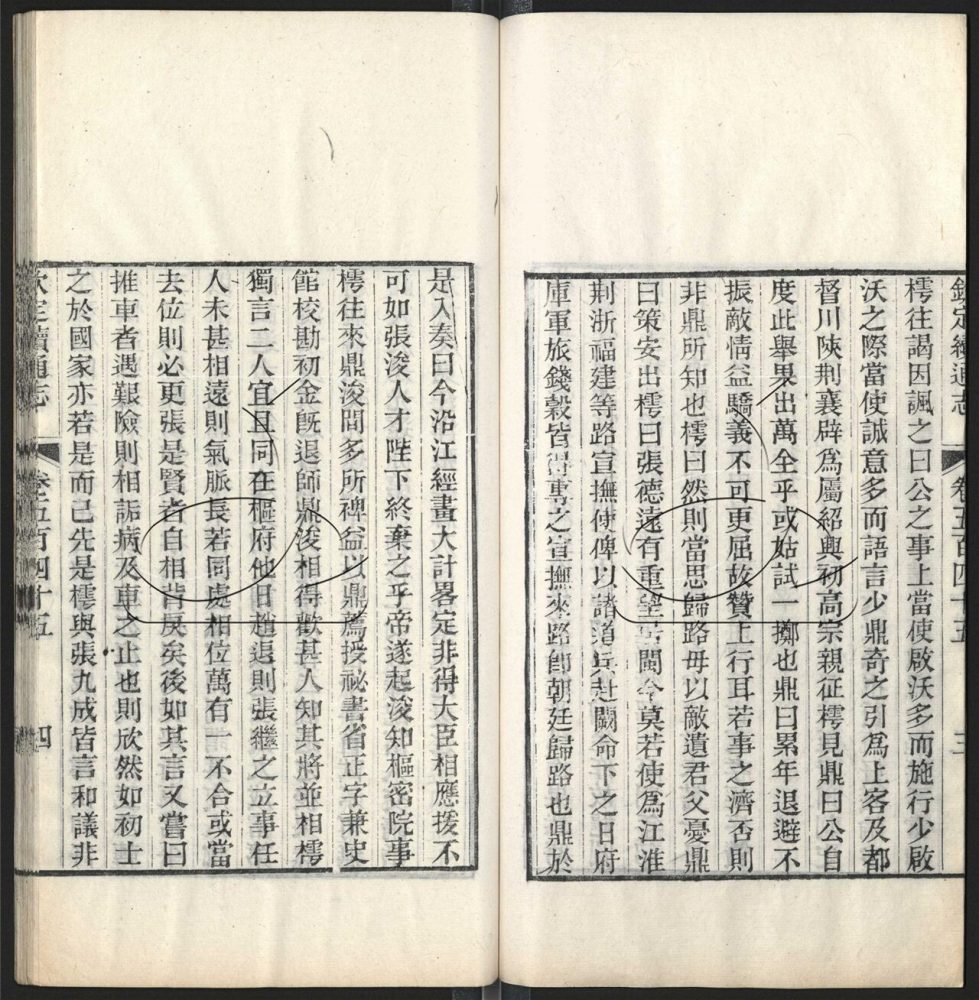 欽定續通志 卷五百四十五 三
樗往謁因諷之曰公之事上當使啟沃多而施行少啟
沃之際當使誠意多而語言少鼎奇之引爲上客及都
督川陝荆襄辟爲屬紹興初高宗親征樗見鼎曰公自
度此舉果出萬全乎或姑試一擲也鼎曰累年退避不
振敵情益驕義不可更屈故贊上行耳若事之濟否則
非鼎所知也樗曰然則當思歸路毋以敵遺君父憂鼎
曰策安出樗曰張德遠有重望居閩今莫若使爲江淮
荆浙福建等路宣撫使俾以諸道兵赴闕命下之日府
庫軍旅錢穀皆得專之宣撫來路卽朝廷歸路也鼎於
是入奏曰今沿江經畫大計畧定非得大臣相應援不
可如張浚人才陛下終棄之乎帝遂起浚知樞密院事
樗往來鼎浚間多所裨益以鼎薦授祕書省正字兼史
館校勘初金旣退師鼎浚相得歡甚人知其將並相樗
獨言二人宜且同在樞府他日趙退則張繼之立事任
人未甚相遠則氣脈長若同處相位萬有一不合或當
去位則必更張是賢者自相背戾矣後如其言又嘗曰
推車者遇艱險則相詬病及車之止也則欣然如初士
之於國家亦若是而已先是樗與張九成皆言和議非
欽定續通志 卷五百四十五 四